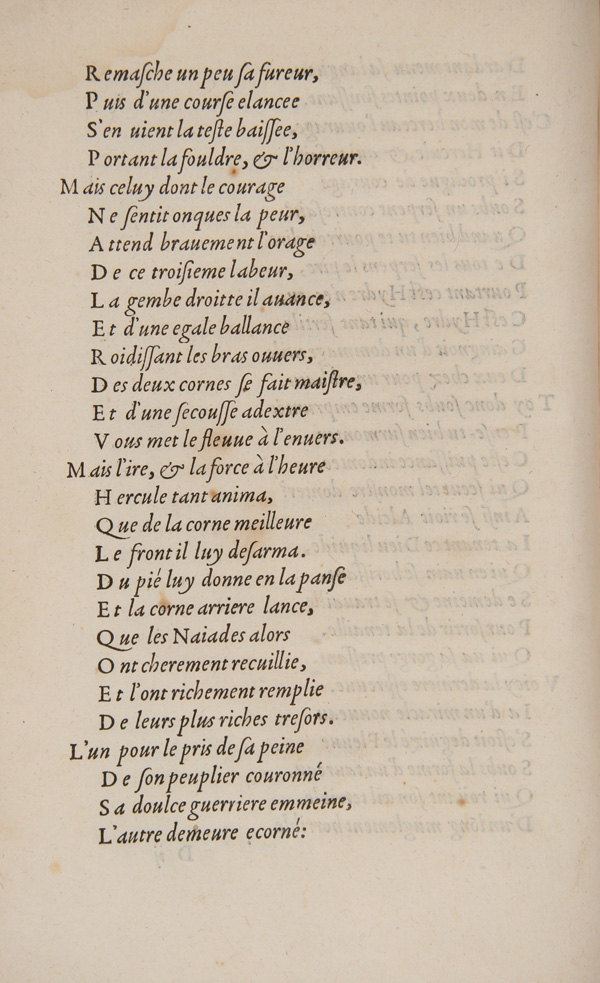 Remaſche un peu ſa fureur,
Puis d'une courſe elancee
S'en uient la teſte baiſſee,
Portant la fouldre, & l'horreur.
Mais celuy dont le courage
Ne ſentit onques la peur,
Attend brauement l'orage
De ce troiſieme labeur,
La gembe droitte il auance,
Et d'une egale ballance
Roidiſſant les bras ouuers,
Des deux cornes ſe fait maiſtre,
Et d'une ſecouſſe adextre
Vous met le fleuue à l'enuers.
Mais l'ire, & la force à l'heure
Hercule tant anima,
Que de la corne meilleure
Le front il luy deſarma.
Du pié luy donne en la panſe
Et la corne arriere lance,
Que les Naiades alors
Ont cherement recuillie,
Et l'ont richement remplie
De leurs plus riches treſors.
L'un pour le pris de ſa peine
De ſon peuplier couronné
Sa doulce guerriere emmeine,
L'autre demeure ecorné: